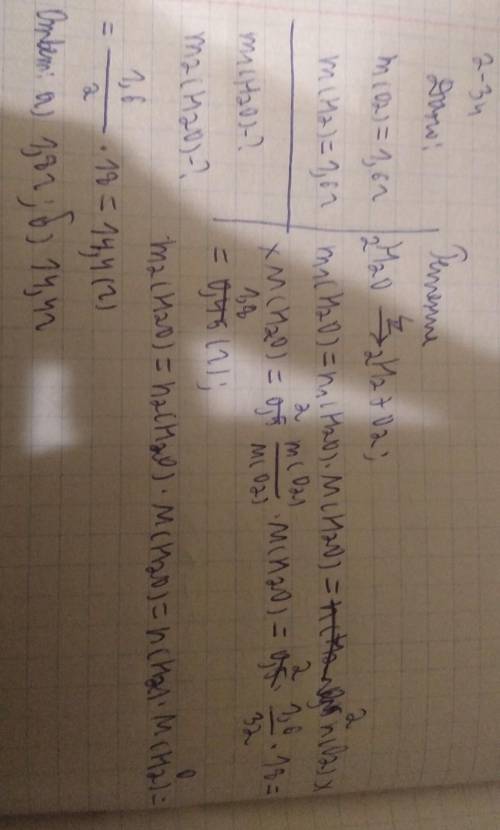 2-34
Дано:
m(O2) = 1,6г
m(H2) = 1,6г
m1(H2O) - ?
m2(H2O) - ?
Решение
2H2O → 2H2 + O2;
m1(H2O) = n1(H2O) · M(H2O) = 2 n(O2) ×
× M(H2O) = 2 m(O2)/M(O2) · M(H2O) = 2 · 1,6/32 · 18 =
= 1,8 (г);
m2(H2O) = n2(H2O) · M(H2O) = n(H2) · M(H2O) =
= 1,6/2 · 18 = 14,4(г)
Ответ: а) 1,8г; б) 14,4г